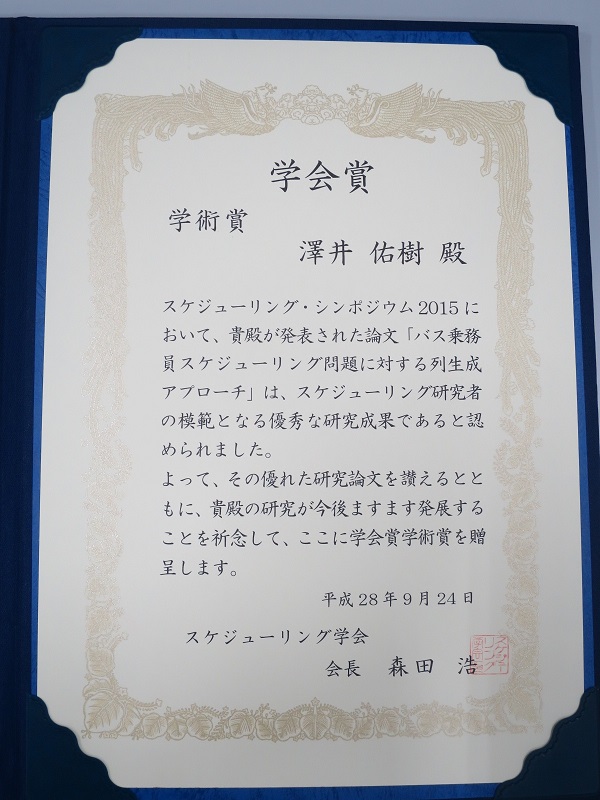 学会賞
学術賞
澤井 佑樹 殿
スケジューリング・シンポジウム2015に
おいて、貴殿が発表された論文「バス乗務
員スケジューリング問題に対する列生成
アプローチ」は、スケジューリング研究者
の模範となる優秀な研究成果であると認
められました。
よって、その優れた研究論文を讃えるとと
もに、貴殿の研究が今後ますます発展する
ことを祈念して、ここに学会賞学術賞を贈
呈します。
平成28年9月24日
スケジューリング学会
会長 森田 浩